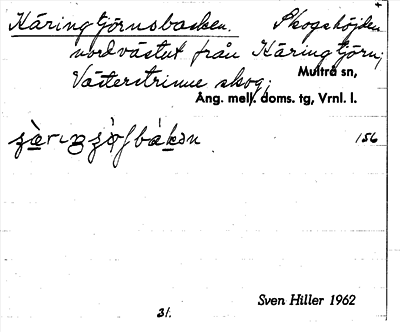 Käringtjörnsbacken. Skogshöjden
nordvästut från Käringtjörn;
Västerstrinne skog;
Multrå sn,
Ång. mell. doms. tg, Vrnl. l.
156
Sven Hiller 1962
31.